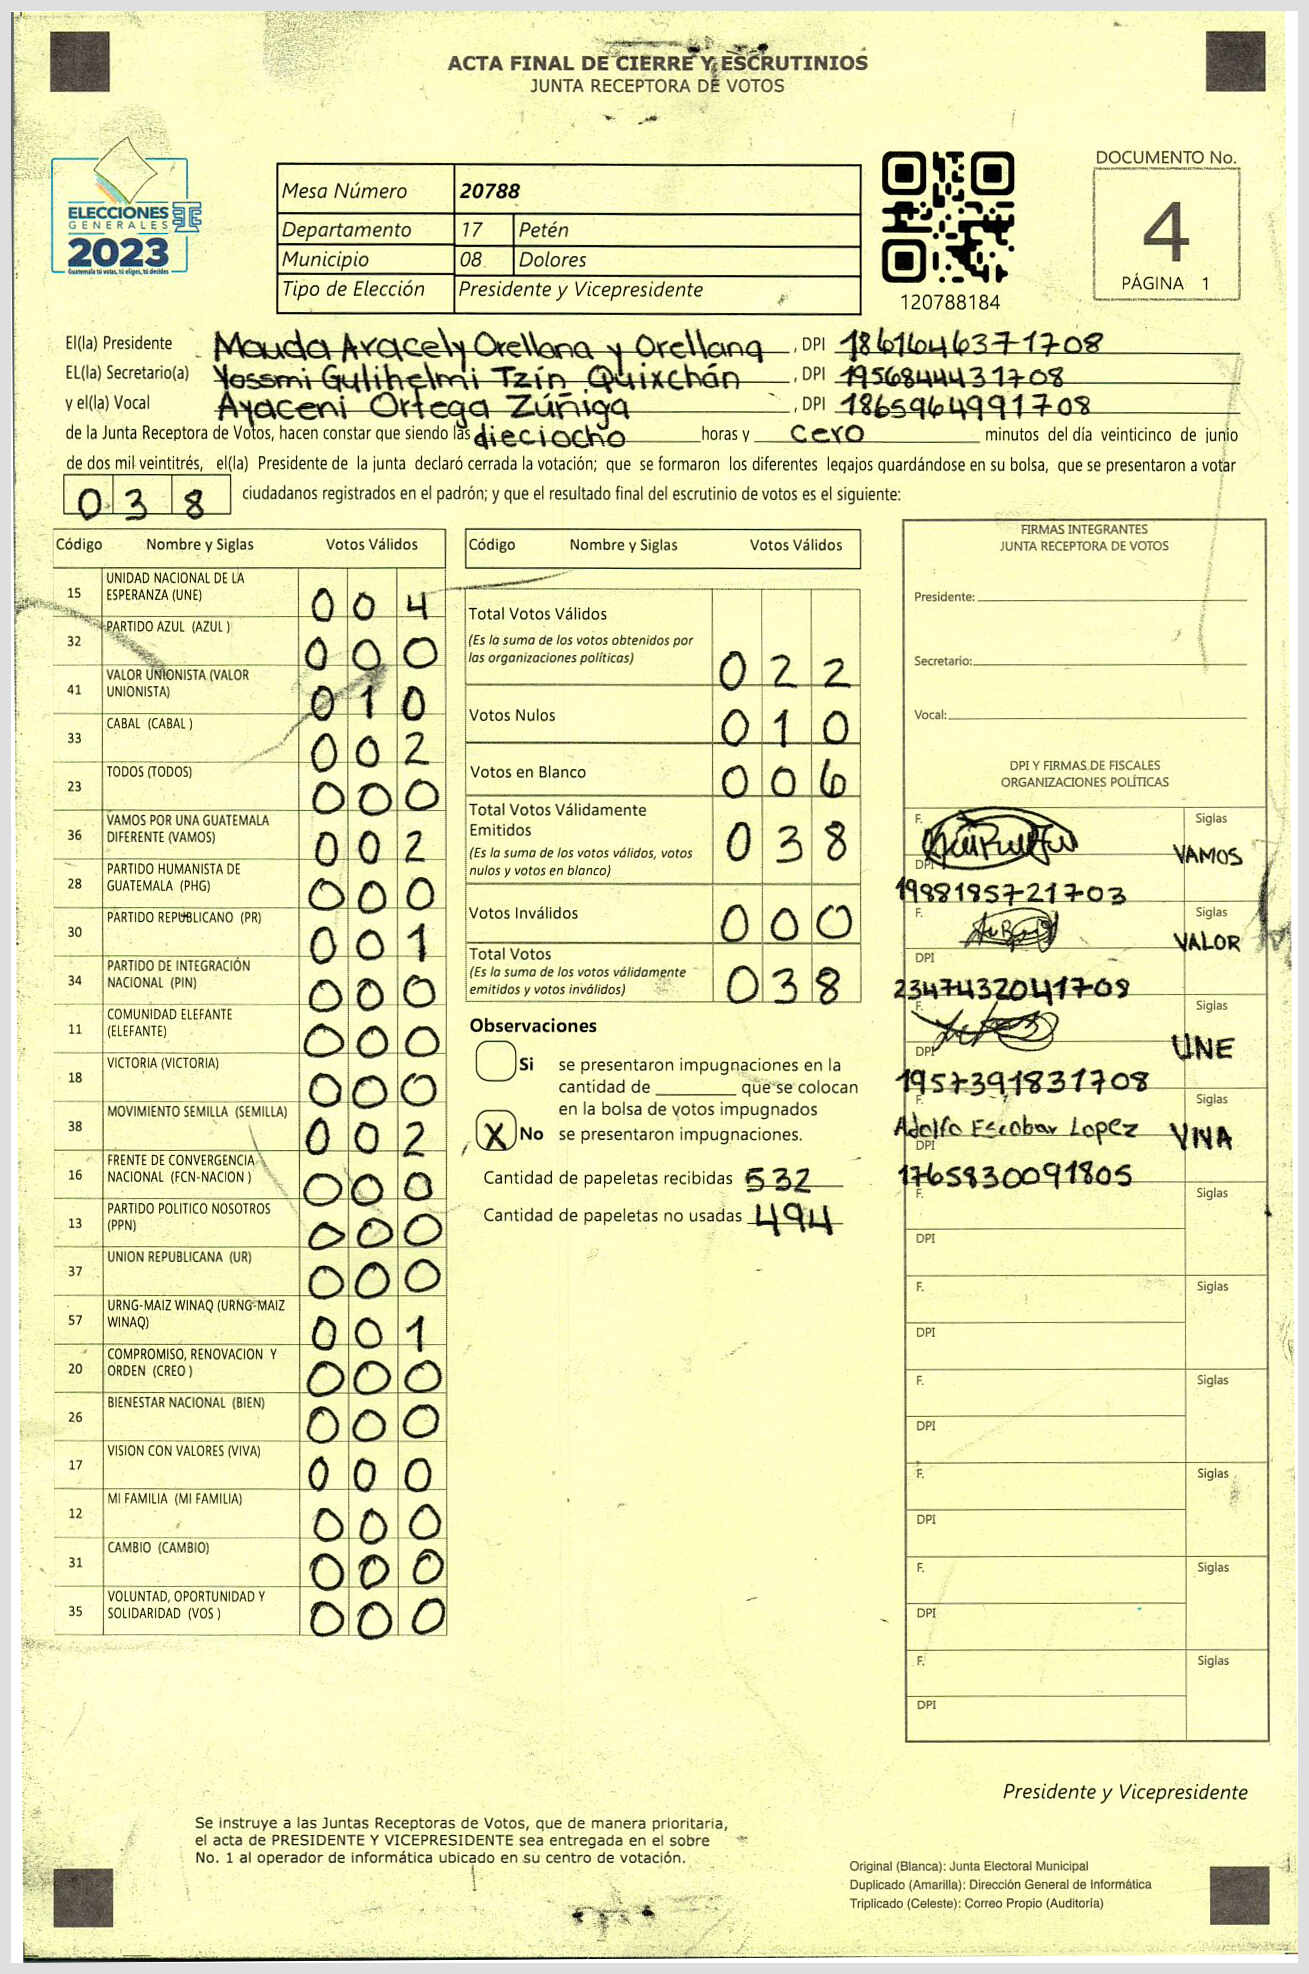 ACTA FINAL DE CIERRE Y ESCRUTINIOS
JUNTA RECEPTORA DE VOTOS
ELECCIONES
GENERALES
2023
Guatemala tú votas, tú eliges, tú decides
Mesa Número 20788
Departamento 17 Petén
Municipio 08 Dolores
Tipo de Elección Presidente y Vicepresidente
120788184
DOCUMENTO No.
4
PÁGINA 1
El(la) Presidente Mauda Aracely Orellana y Orellana, DPI 1861646371708
EL(la) Secretario(a) Yossmi Gulihelmi Tzin Quixchán, DPI 1956844431708
y el(la) Vocal Ayaceni Ortega Zúñiga, DPI 1865964991708
de la Junta Receptora de Votos, hacen constar que siendo las dieciocho horas y cero minutos del día veinticinco de junio
de dos mil veintitrés, el(la) Presidente de la junta declaró cerrada la votación; que se formaron los diferentes legajos guardándose en su bolsa, que se presentaron a votar
038 ciudadanos registrados en el padrón; y que el resultado final del escrutinio de votos es el siguiente:
Código Nombre y Siglas Votos Válidos
15 UNIDAD NACIONAL DE LA ESPERANZA (UNE) 004
32 PARTIDO AZUL (AZUL ) 000
41 VALOR UNIONISTA (VALOR UNIONISTA) 010
33 CABAL (CABAL ) 002
23 TODOS (TODOS) 000
36 VAMOS POR UNA GUATEMALA DIFERENTE (VAMOS) 002
28 PARTIDO HUMANISTA DE GUATEMALA (PHG) 000
30 PARTIDO REPUBLICANO (PR) 001
34 PARTIDO DE INTEGRACIÓN NACIONAL (PIN) 000
11 COMUNIDAD ELEFANTE (ELEFANTE) 000
18 VICTORIA (VICTORIA) 000
38 MOVIMIENTO SEMILLA (SEMILLA) 002
16 FRENTE DE CONVERGENCIA NACIONAL (FCN-NACION ) 000
13 PARTIDO POLITICO NOSOTROS (PPN) 000
37 UNION REPUBLICANA (UR) 000
57 URNG-MAIZ WINAQ (URNG-MAIZ WINAQ) 001
20 COMPROMISO, RENOVACION Y ORDEN (CREO ) 000
26 BIENESTAR NACIONAL (BIEN) 000
17 VISION CON VALORES (VIVA) 000
12 MI FAMILIA (MI FAMILIA) 000
31 CAMBIO (CAMBIO) 000
35 VOLUNTAD, OPORTUNIDAD Y SOLIDARIDAD (VOS ) 000
Código Nombre y Siglas Votos Válidos
Total Votos Válidos
(Es la suma de los votos obtenidos por
las organizaciones políticas) 022
Votos Nulos 010
Votos en Blanco 006
Total Votos Válidamente
Emitidos 038
(Es la suma de los votos válidos, votos
nulos y votos en blanco)
Votos Inválidos 000
Total Votos
(Es la suma de los votos válidamente
emitidos y votos inválidos) 038
Observaciones
Si se presentaron impugnaciones en la
cantidad de ________ que se colocan
en la bolsa de votos impugnados
X No se presentaron impugnaciones.
Cantidad de papeletas recibidas 532
Cantidad de papeletas no usadas 494
FIRMAS INTEGRANTES
JUNTA RECEPTORA DE VOTOS
Presidente:
Secretario:
Vocal:
DPI Y FIRMAS DE FISCALES
ORGANIZACIONES POLÍTICAS
F. Siglas
VAMOS
DPI
1988185721703
F. Siglas
VALOR
DPI
2347432041708
F. Siglas
UNE
DPI
1957391831708
F. Siglas
Adolfo Escobar Lopez VIVA
DPI
1765830091805
F. Siglas
DPI
F. Siglas
DPI
F. Siglas
DPI
F. Siglas
DPI
F. Siglas
DPI
F. Siglas
DPI
Presidente y Vicepresidente
Se instruye a las Juntas Receptoras de Votos, que de manera prioritaria,
el acta de PRESIDENTE Y VICEPRESIDENTE sea entregada en el sobre
No. 1 al operador de informática ubicado en su centro de votación.
Original (Blanca): Junta Electoral Municipal
Duplicado (Amarilla): Dirección General de Informática
Triplicado (Celeste): Correo Propio (Auditoría)